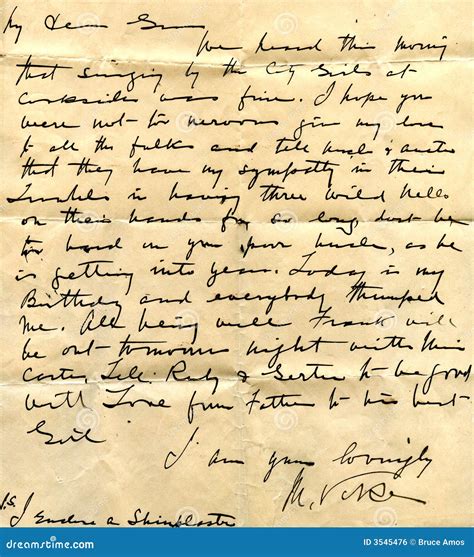 My Dear Girl
We heard this morning
that singing by the City Girls at
was fine. I hope you
were not too nervous give my love
to all the folks and tell uncle & aunts
that they have my sympathy in their
troubles in having three wild
on their hands for so long dont be
too hard on your poor uncle, as he
is getting into years. Today is my
Birthday and everybody thumped
me. All being well Frank will
be out tomorrow night with his
Tell Ruby & Gertie to be good
with Love from Father to his best
Girl
I am yours lovingly
M.
P.S.
I Enclose a Shinplaster
dreamstime.com
ID 3545476 © Bruce Amos